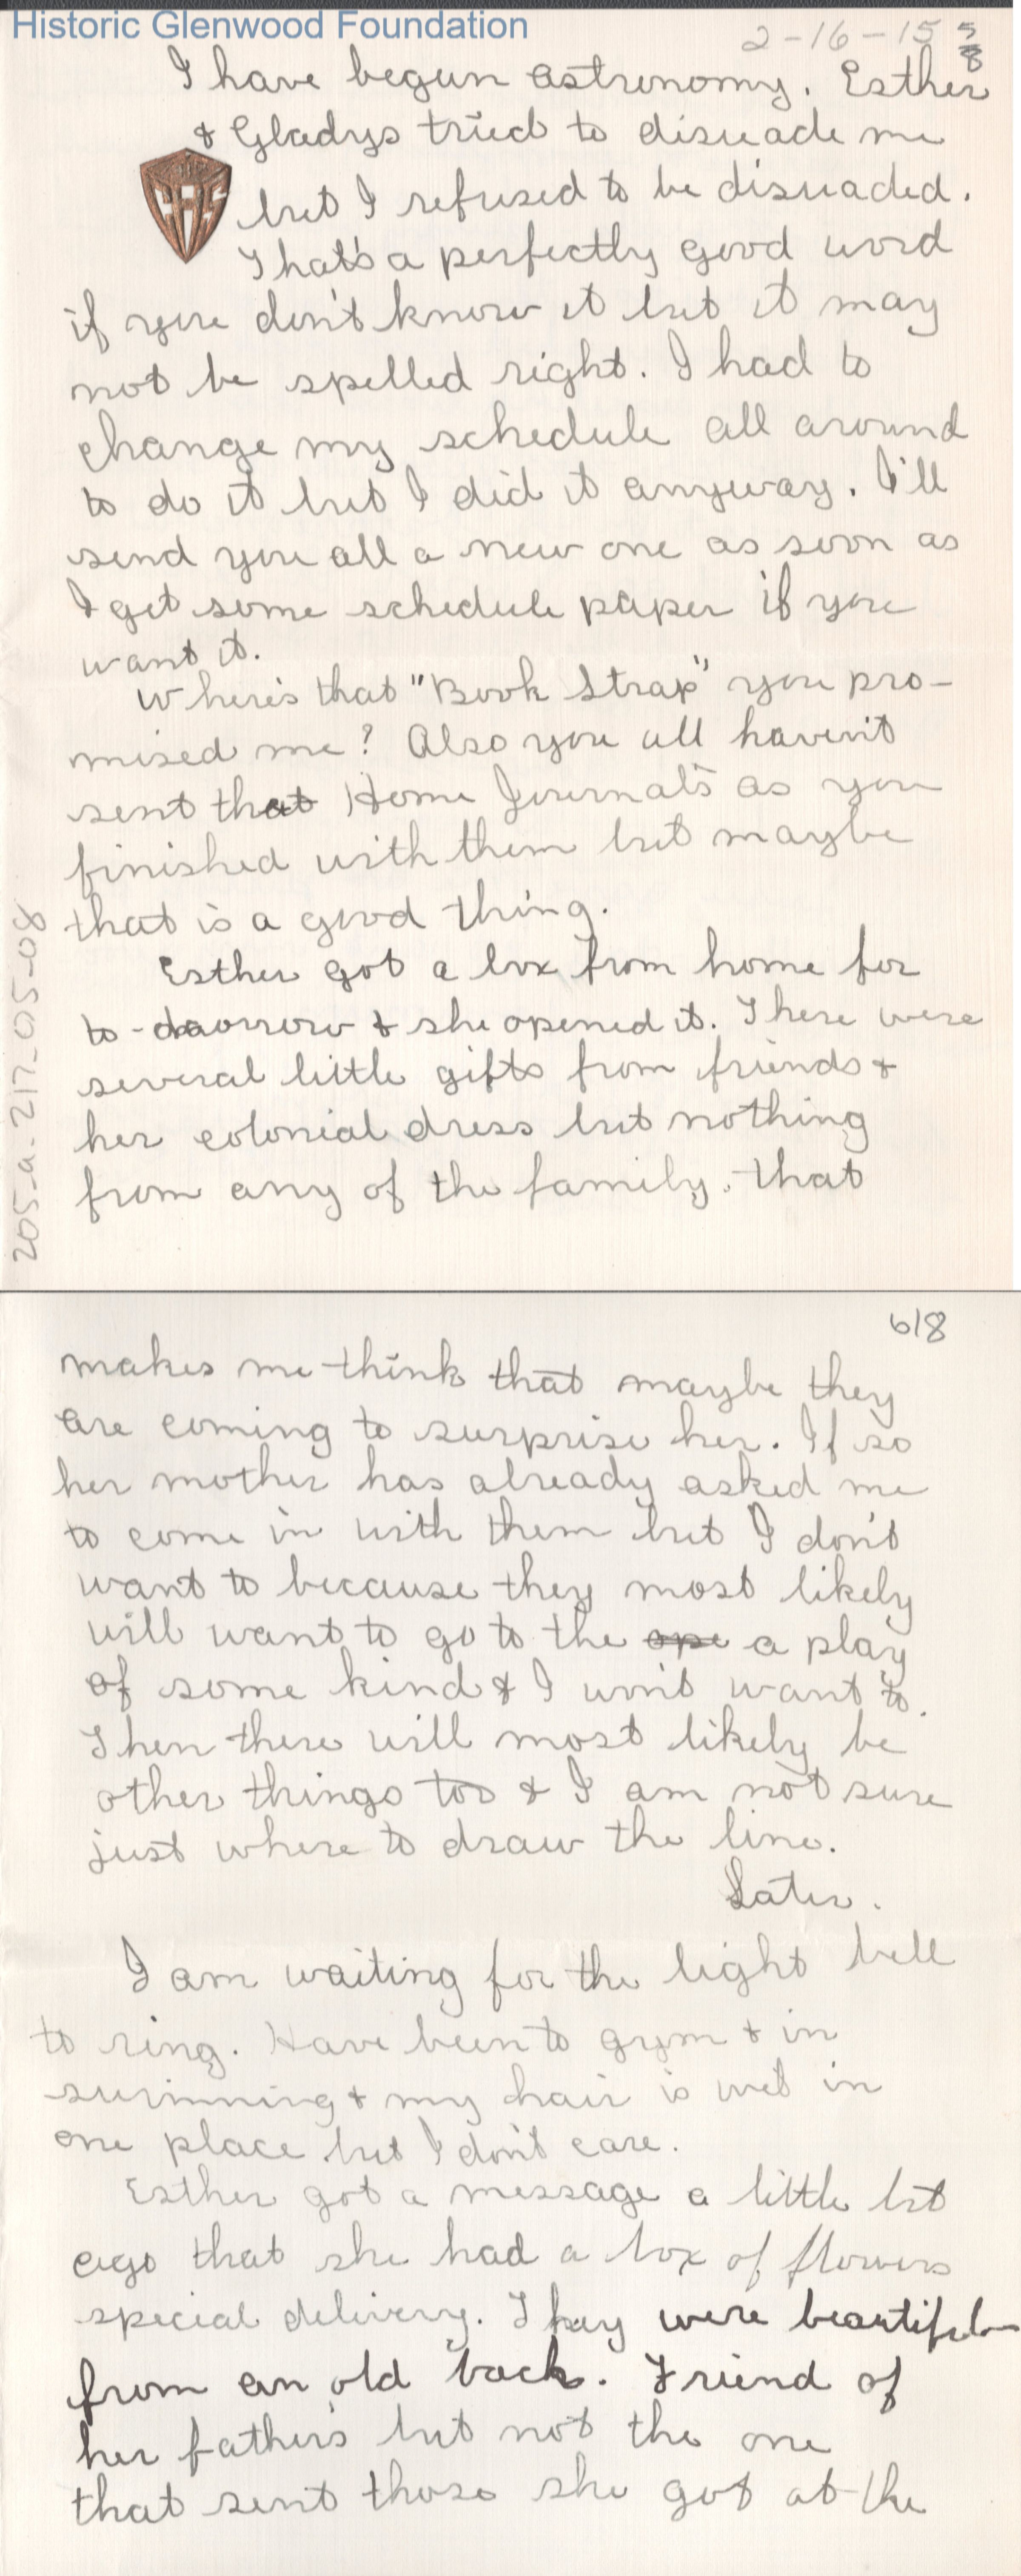 Historic Glenwood Foundation
2-16-15 5/8
I have begun astronomy. Esther
& Gladys tried to disuade me
but I refused to be disuaded.
That's a perfectly good word
if you don't know it but it may
not be spelled right. I had to
change my schedule all around
to do it but I did it anyway. I'll
send you all a new one as soon as
I get some schedule paper if you
want it.
Where's that "Book Strap" you pro-
mised me? Also you all haven't
sent that Home Journals as you
finished with them but maybe
that is a good thing.
Esther got a box from home for
to-morrow & she opened it. There were
several little gifts from friends &
her colonial dress but nothing
from any of the family. That
205-a.217-015-08
6/8
makes me think that maybe they
are coming to surprise her. If so
her mother has already asked me
to come in with them but I don't
want to because they most likely
will want to go to the ope a play
of some kind & I won't want to.
Then there will most likely be
other things too & I am not sure
just where to draw the line.
Later.
I am waiting for the light bell
to ring. Have been to gym & in
swimming & my hair is wet in
one place but I don't care.
Esther got a message a little bit
ago that she had a box of flowers
special delivery. They were beautiful
from an old bach. Friend of
her father's but not the one
that sent those she got at the